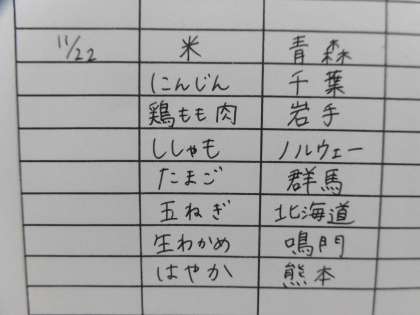 11/22 米 青森
にんじん 千葉
鶏もも肉 岩手
ししゃも ノルウェー
たまご 群馬
玉ねぎ 北海道
生わかめ 鳴門
はやか 熊本